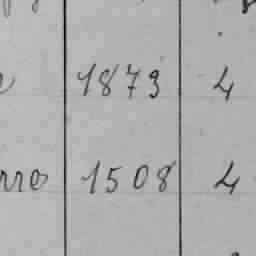 1873 4
rro 1508 4